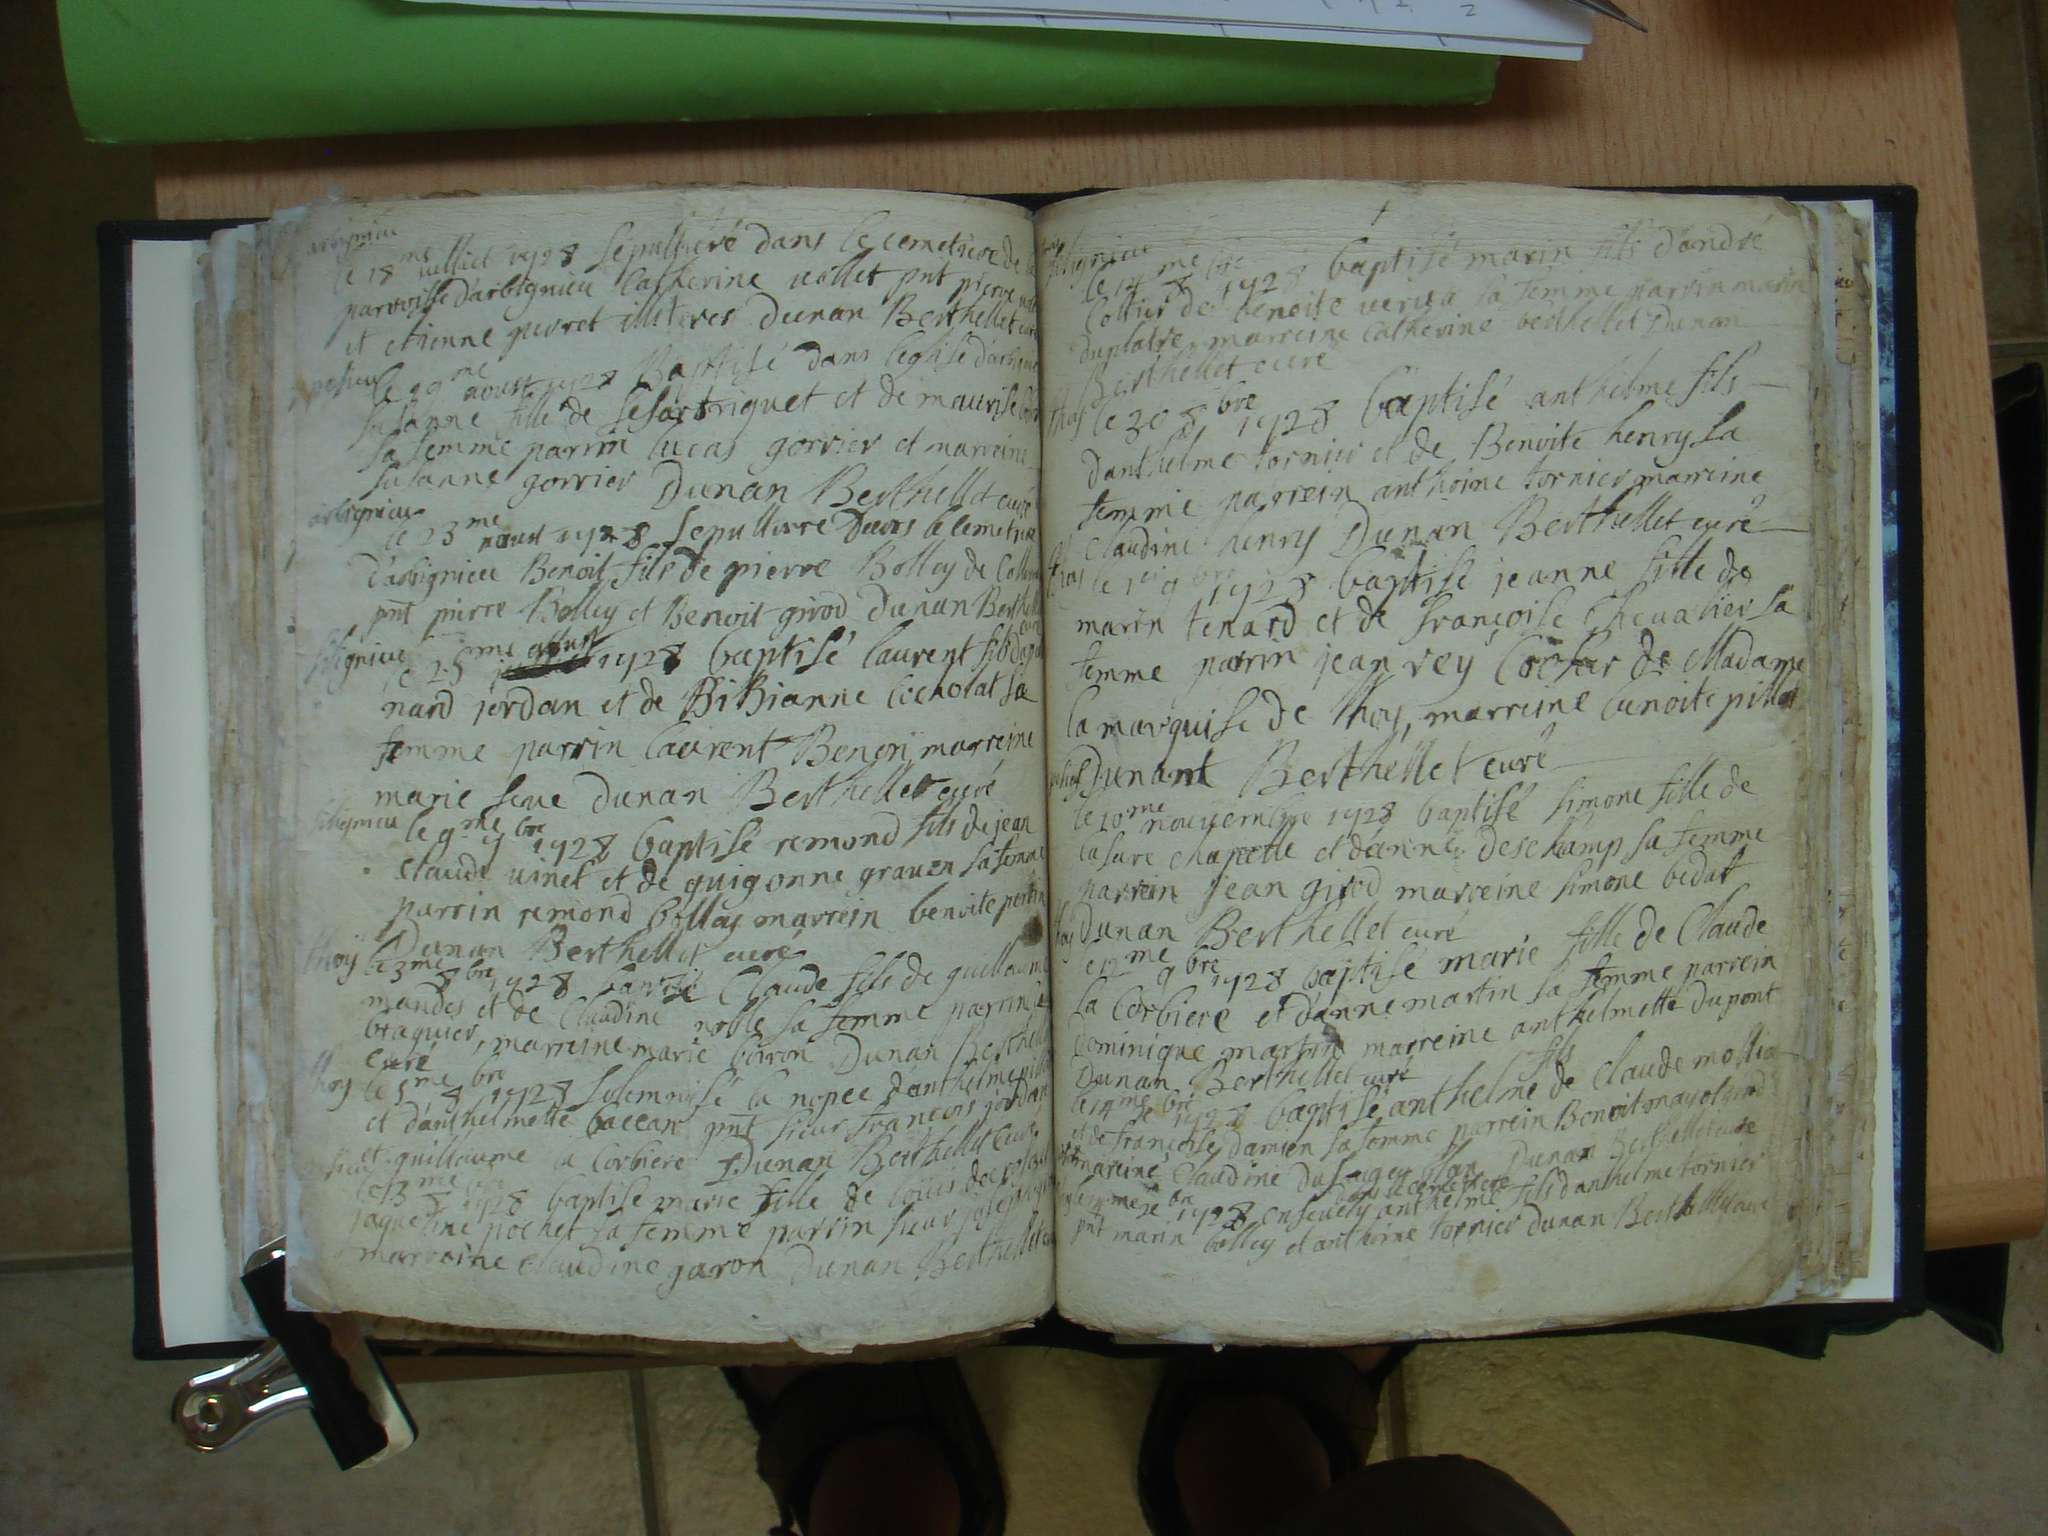 arbignieu
le 18me juilliet 1728 sepulturé dans le cemetiere de la
parroisse d'arbignieu Catherine vollet pnt pierre
et etienne guerret illiteres Dunan Berthellet curé
le 22me aoust 1728 Baptisé dans leglise d'arbignieu
susanne fille de Cesar triquet et de maurise
sa femme parrin lucas gorrier et marreine
susanne gorrier Dunan Berthellet curé
arbignieu
le 23me aoust 1728 sepulturé dans le cemetiere
d'arbignieu Benoit fils de pierre Bolley de
pnt pierre Bolley et Benoit girod Dunan Berthellet
curé
le 25me aoust 1728 baptisé laurent fils de
nard jordan et de BiBianne Cochonat sa
femme parrin laurent Benon marreine
marie seve Dunan Berthellet curé
le 9me 7bre 1728 baptisé remond fils de jean
Claude vinet et de guigonne graven sa femme
parrin remond bolley marrein benoite
Dunan Berthellet curé
thoy
le 3me 8bre 1728 baptisé Claude fils de guillaume
mandes et de Claudine noble sa femme parrin
braquier, marreine marie boiron Dunan Berthellet
curé
thoy
le 5me 8bre 1728 solemnisé la nopce d'anthelme
et d'anthelmette baccan pnt sieur françois jordan
et guillaume la Corbiere Dunan Berthellet curé
le 13me 8bre 1728 baptisé marie fille de louis
jaquefine pochet sa femme parrin sieur joseph
marraine Claudine garon Dunan Berthellet
le 14me 8bre 1728 baptisé marin fils d'andré
Collier de benoite sa femme parrin marin
duplatre marreine catherine berthellet Dunan
Berthellet curé
thoy
le 30 8bre 1728 baptisé anthelme fils
danthelme tornier et de Benoite henry sa
femme parrein anthoine tornier marreine
Claudine henry Dunan Berthellet curé
thoy
le 1er 9bre 1728 baptisé jeanne fille de
marin tenard et de françoise Chevalier sa
femme parrin jean rey Cochar de Madame
la marquise de thoy, marreine benoite pillot
Dunant Berthellet curé
le 10me nouvembre 1728 baptisé simone fille de
Cesare chapelle et d'anne deschamp sa femme
parrein jean girod marreine simone bedat
Dunan Berthellet curé
le 12me 9bre 1728 baptisé marie fille de Claude
la Corbiere et d'anne martin sa femme parrein
Dominique martin marreine anthelmette dupont
Dunan Berthellet curé
fils
le 14me 1728 baptisé anthelme de Claude mollia
et de françoise damien sa femme parrein Benoit
marreine Claudine Dunan Berthellet curé
dans le cemetiere
1728 ensevely anthelme fils danthelme tornier
pnt marin bolley et anthoine tornier Dunan Berthellet curé